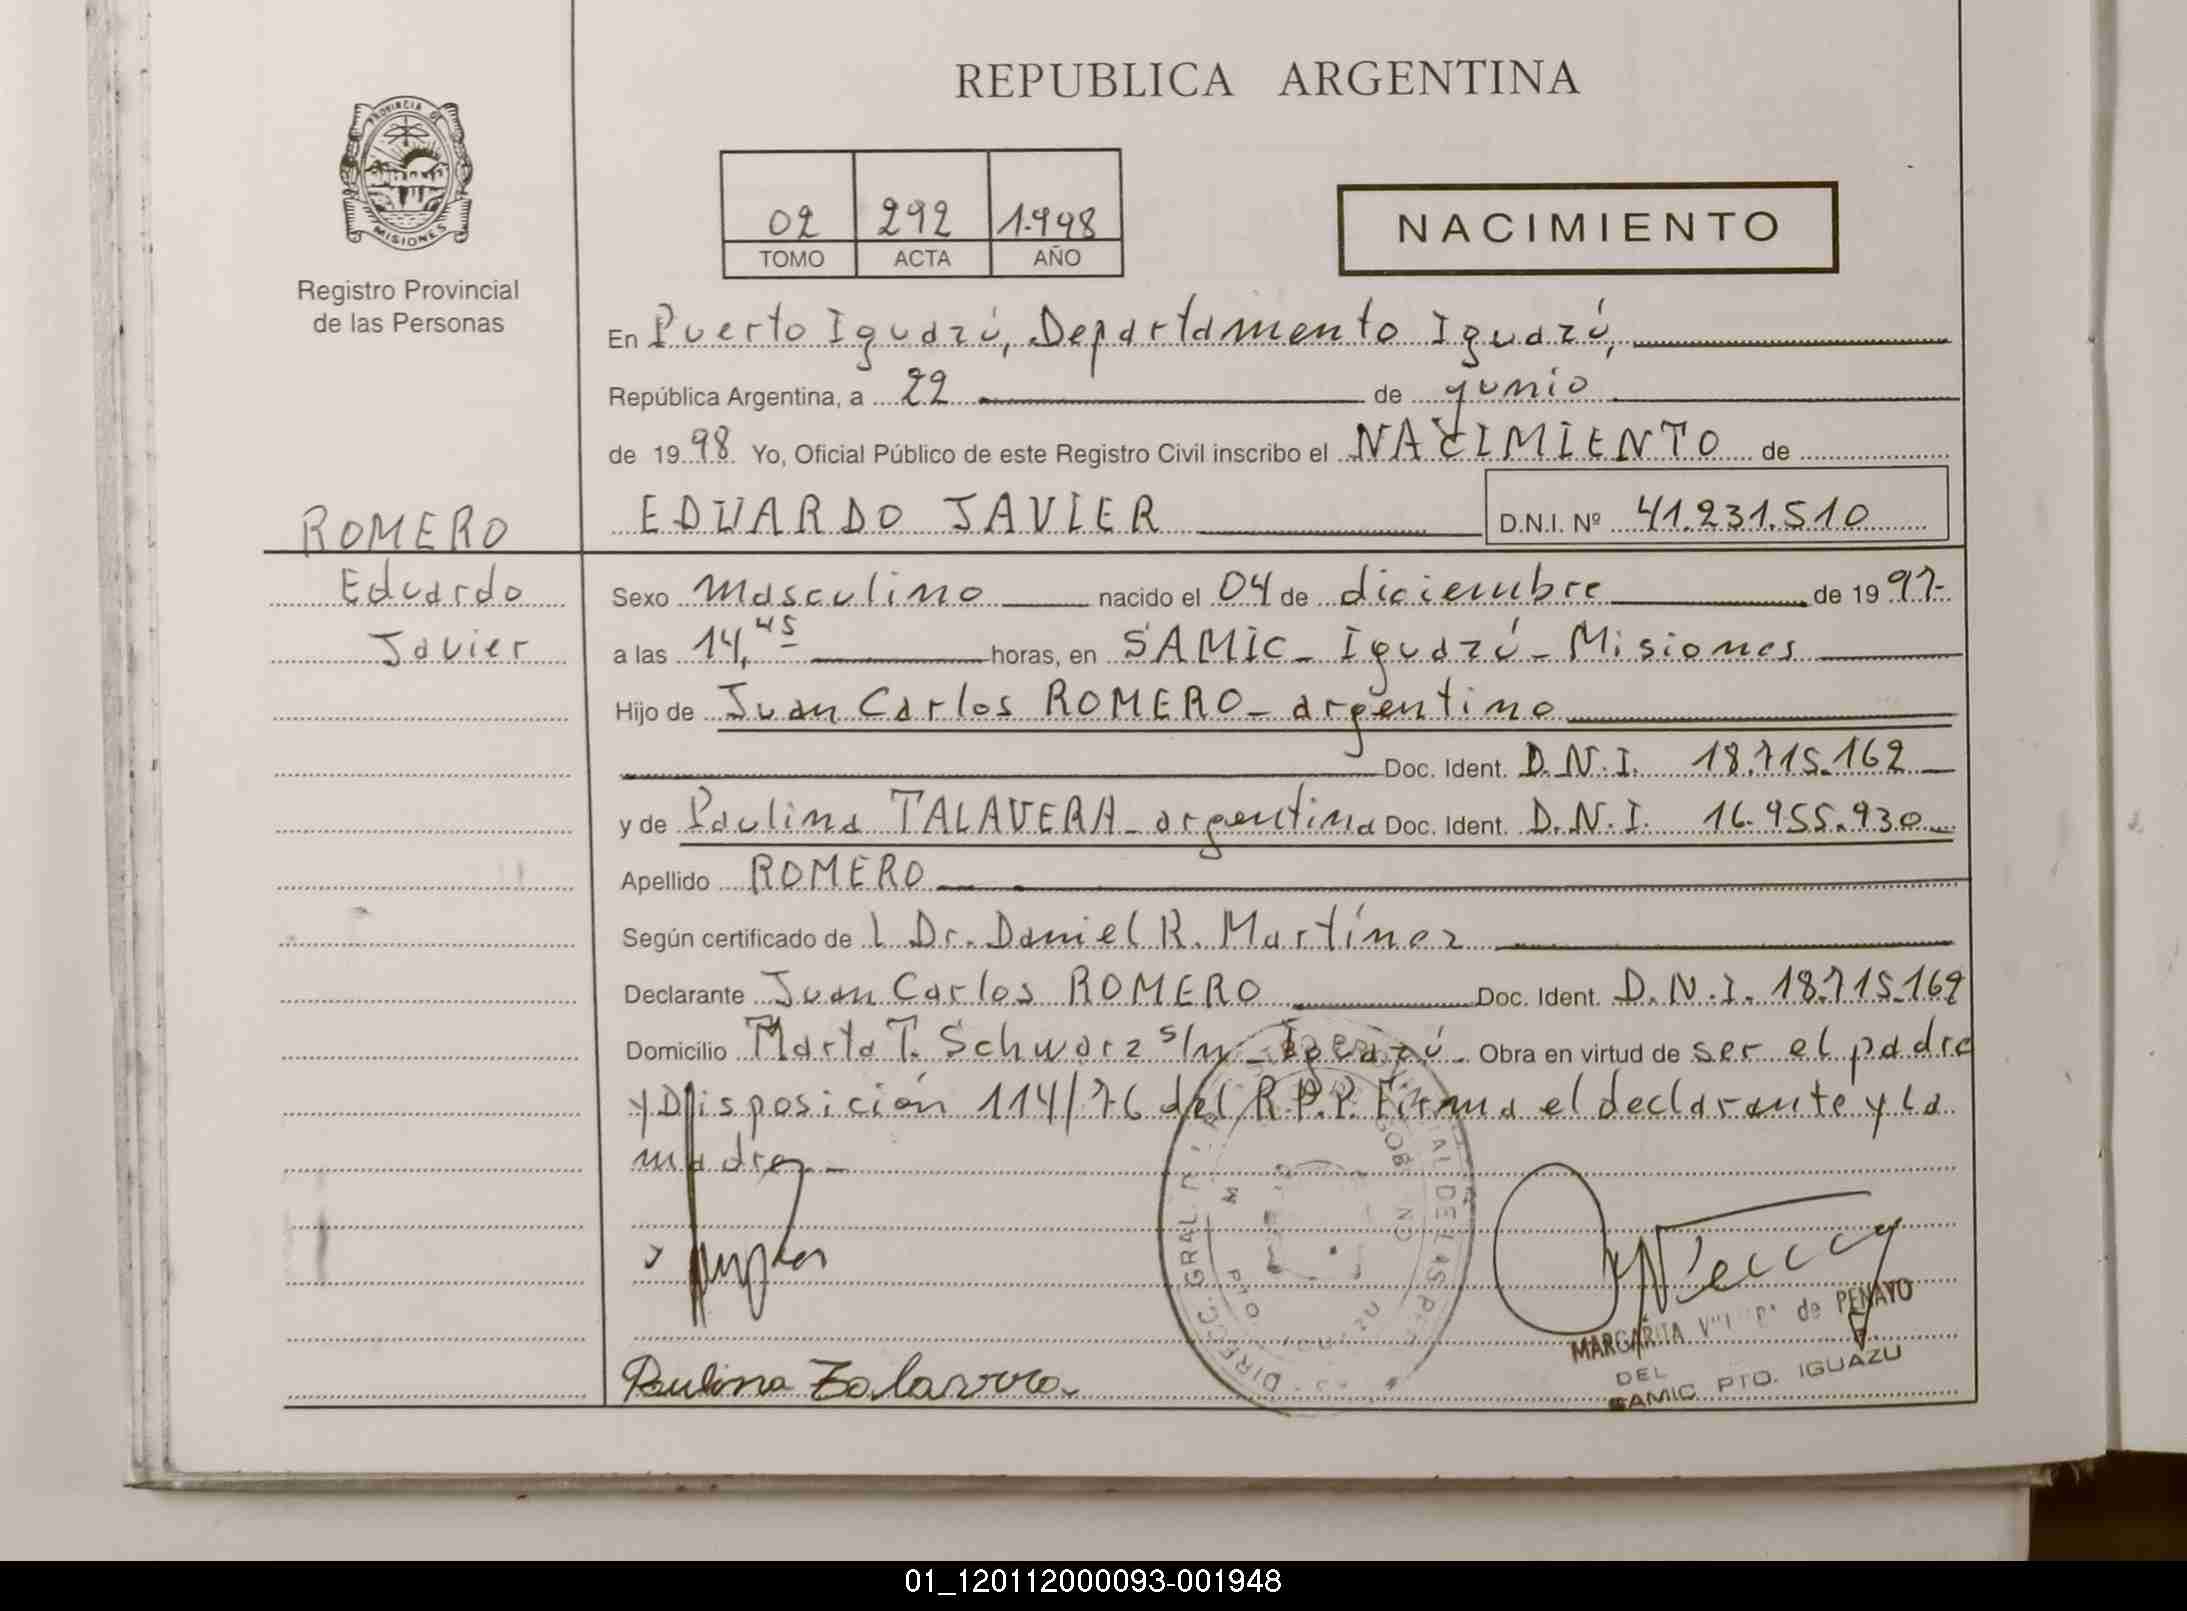 REPUBLICA ARGENTINA
PROVINCIA DE
MISIONES
Registro Provincial
de las Personas
02 292 1.998
TOMO ACTA AÑO
NACIMIENTO
En Puerto Iguazú, Departamento Iguazú,
República Argentina, a 22 de junio
de 1998 Yo, Oficial Público de este Registro Civil inscribo el NACIMIENTO de
EDUARDO JAVIER D.N.I. Nº 41.231.510
ROMERO
Eduardo
Javier
Sexo masculino nacido el 04 de diciembre de 1997-
a las 14,45 horas, en SAMIC - Iguazú - Misiones
Hijo de Juan Carlos ROMERO - argentino
Doc. Ident. D.N.I. 18.715.162
y de Paulina TALAVERA - argentina Doc. Ident. D.N.I. 16.955.930
Apellido ROMERO
Según certificado de l Dr. Daniel R. Martínez
Declarante Juan Carlos ROMERO Doc. Ident. D.N.I. 18.715.162
Domicilio Marta T. Schwarz s/n - Iguazú - Obra en virtud de ser el padre
y Disposición 114/76 del R.P.P. Firma el declarante y la
madre -
Paulina Talavera
MARGARITA de PENAYO
DEL
SAMIC PTO. IGUAZU
01_120112000093-001948